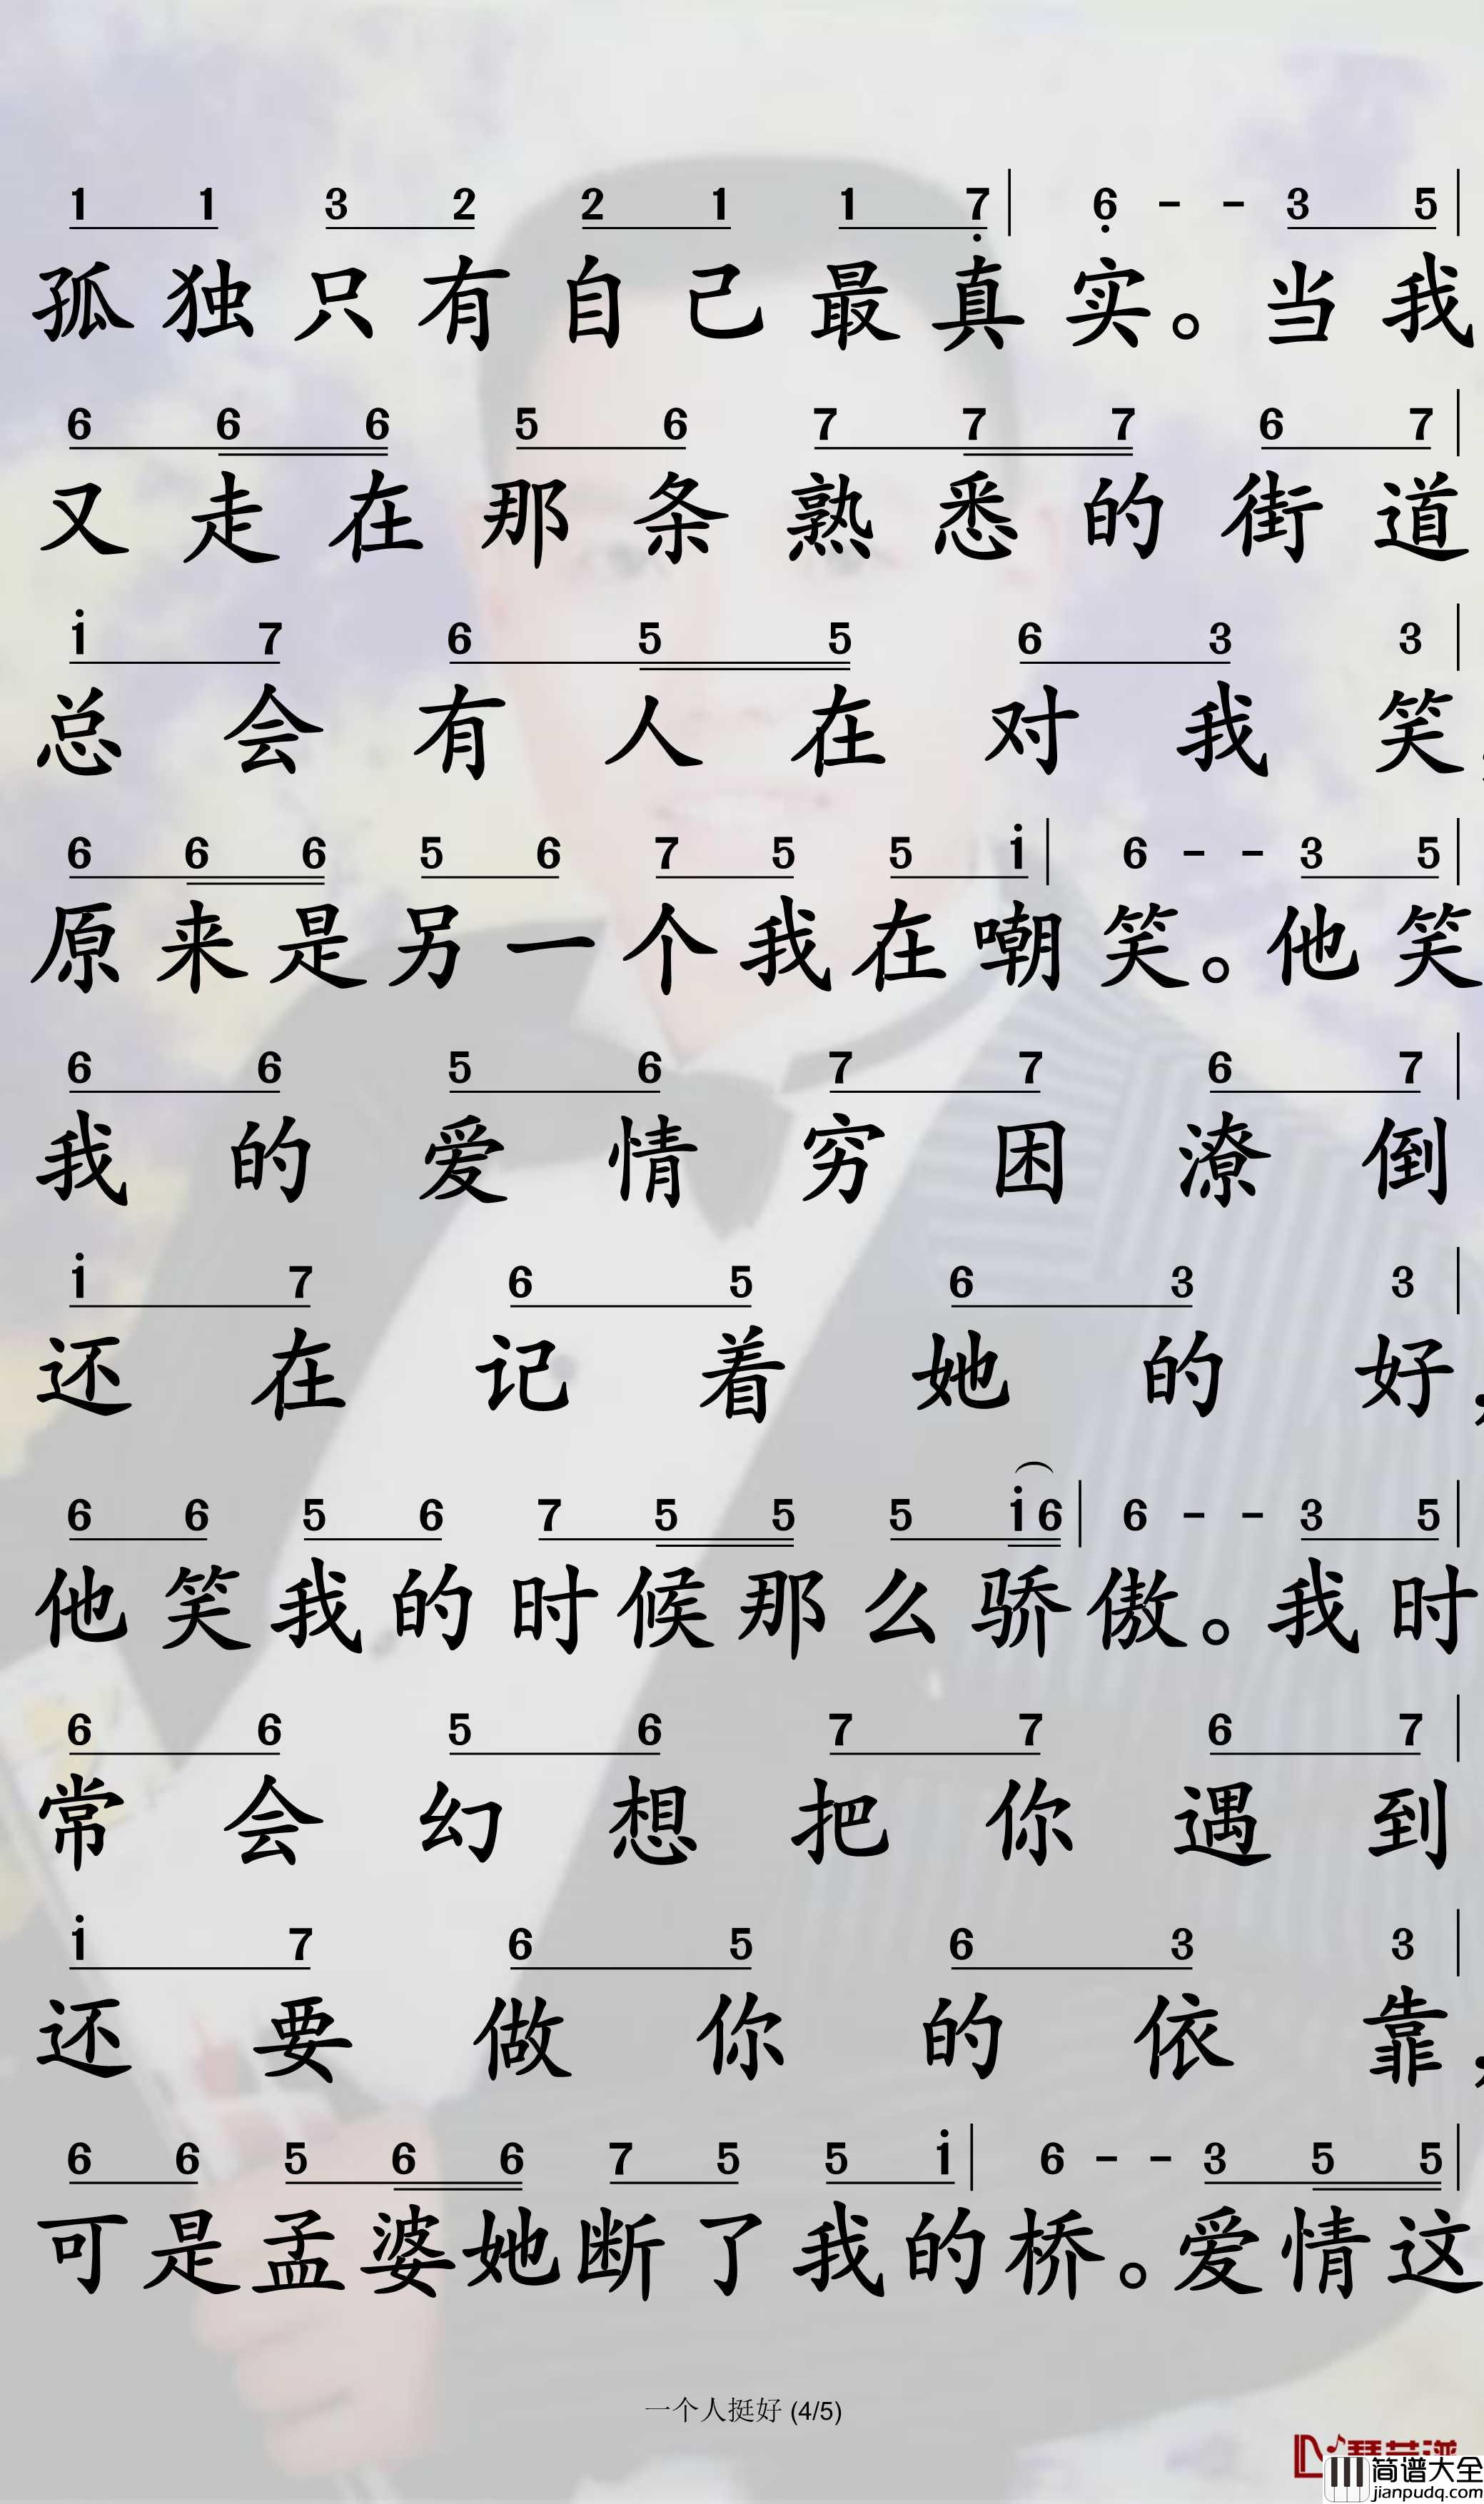 1 1 3 2 2 1 1 7̣ | 6̣ - - 3 5 |
孤独只有自己最真实。当我
6 6 6 5 6 7 7 7 6 7 |
又走在那条熟悉的街道
i 7 6 5 5 6 3 3 |
总会有人在对我笑
6 6 6 5 6 7 5 5 i | 6 - - 3 5 |
原来是另一个我在嘲笑。他笑
6 6 5 6 7 7 6 7 |
我的爱情穷困潦倒
i 7 6 5 6 3 3 |
还在记着她的好，
6 6 5 6 7 5 5 5 i 6 | 6 - - 3 5 |
他笑我的时候那么骄傲。我时
6 6 5 6 7 7 6 7 |
常会幻想把你遇到
i 7 6 5 6 3 3 |
还要做你的依靠，
6 6 5 6 6 7 5 5 i | 6 - - 3 5 5 |
可是孟婆她断了我的桥。爱情这
一个人挺好 (4/5)
简谱大全
jianpudq.com